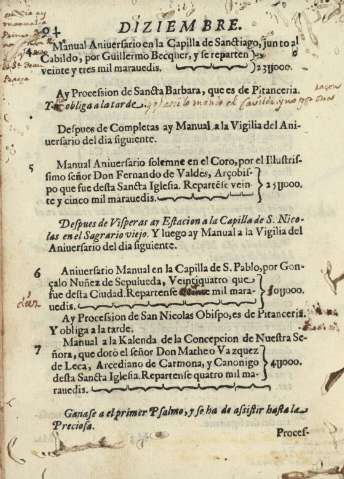 94
DIZIEMBRE.
4 Manual Aniversario en la Capilla de Sanctiago, junto al
Cabildo, por Guillermo Becquer, y se reparten
veinte y tres mil marauedis. 23U000.
Ay Procession de Sancta Barbara, que es de Pitanceria.
Y obliga a la tarde.
Despues de Completas ay Manual a la Vigilia del Ani-
uersario del dia siguiente.
5 Manual Aniversario solemne en el Coro, por el Illustris-
simo señor Don Fernando de Valdes, Arçobis-
po que fue desta Sancta Iglesia. Repartese vein-
te y cinco mil marauedis. 25U000.
Despues de Visperas ay Estacion a la Capilla de S. Nico-
las en el Sagrario viejo. Y luego ay Manual a la Vigilia del
Aniversario del dia siguiente.
6 Aniversario Manual en la Capilla de S. Pablo, por Gon-
çalo Nuñez de Sepulueda, Veintiquatro que
fue desta Ciudad. Repartense mil mara-
uedis.
Ay Procession de San Nicolas Obispo, es de Pitanceria.
Y obliga a la tarde.
7 Manual a la Kalenda de la Concepcion de Nuestra Se-
ñora, que dotò el señor Don Matheo Vazquez
de Leca, Arcediano de Carmona, y Canonigo 4U000.
desta Sancta Iglesia. Repartense quatro mil ma-
rauedis.
Ganase a el primer Psalmo, y se ha de assistir hasta la
Preciosa.
Proces-